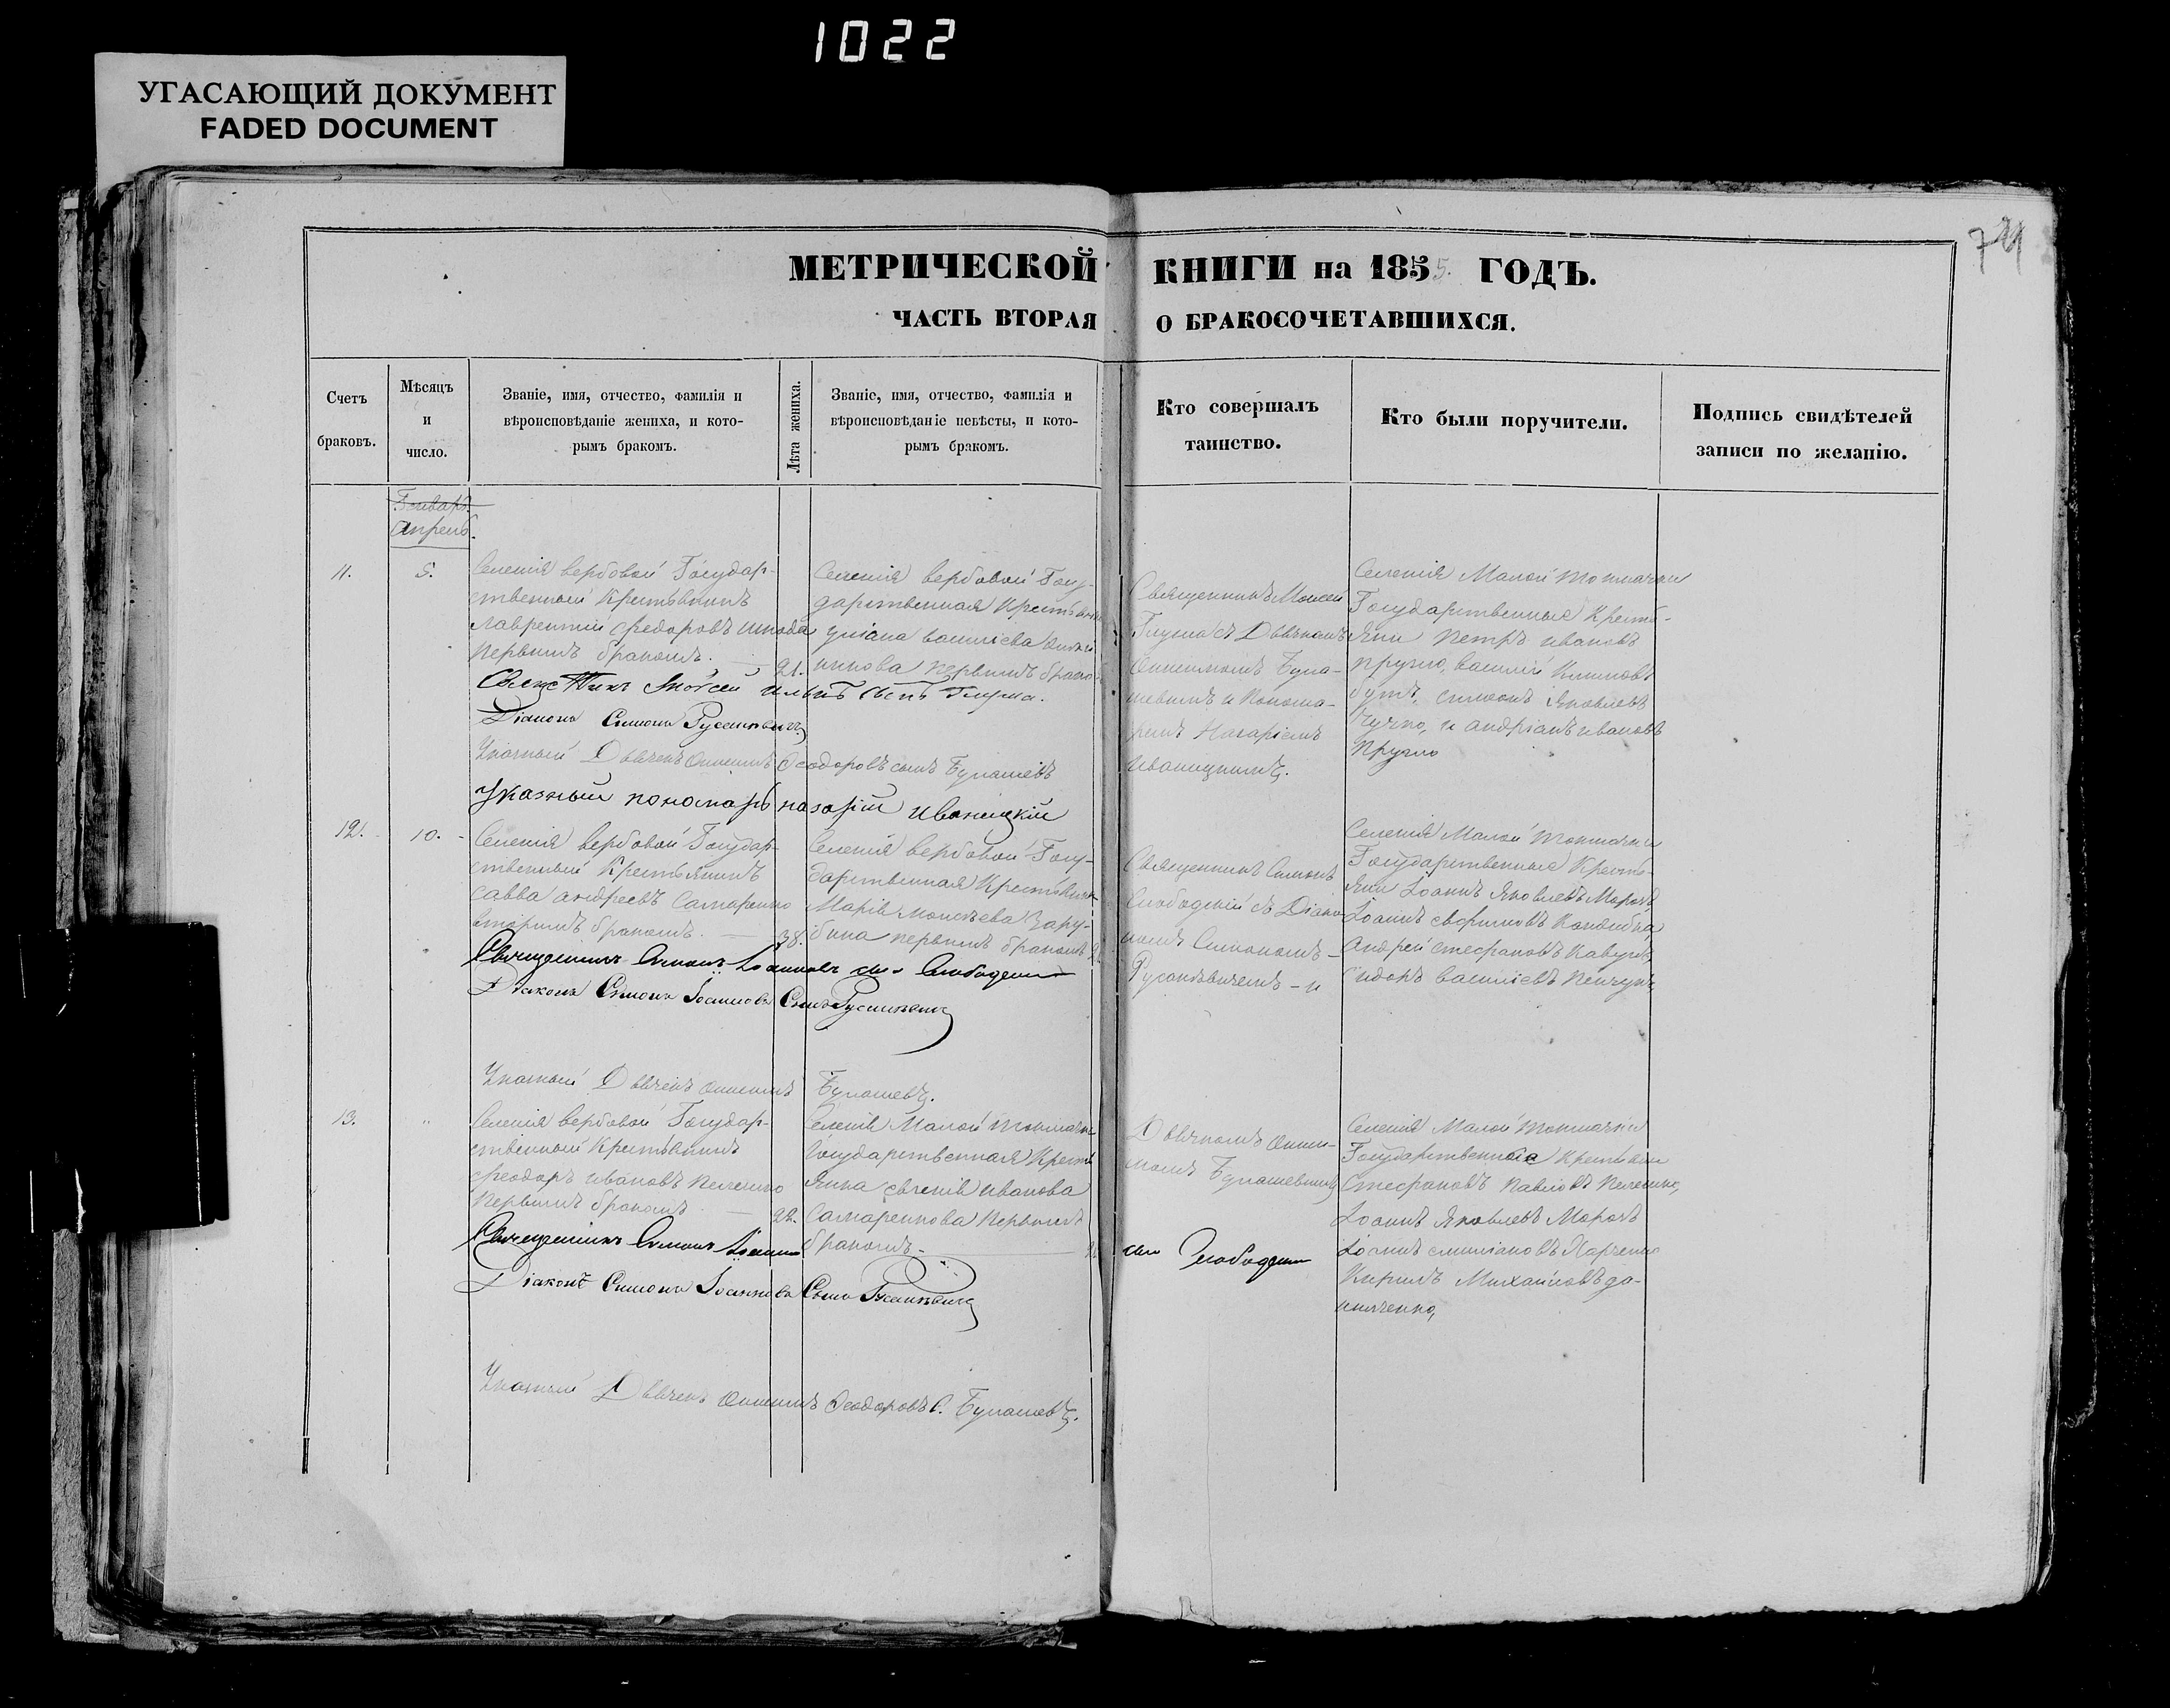 1022
УГАСАЮЩИЙ ДОКУМЕНТ
FADED DOCUMENT
74
МЕТРИЧЕСКОЙ КНИГИ на 1855. ГОДЪ.
ЧАСТЬ ВТОРАЯ О БРАКОСОЧЕТАВШИХСЯ.
Счетъ
браковъ.
Мѣсяцъ
и
число.
Званіе, имя, отчество, фамилія и
вѣроисповѣданіе жениха, и кото-
рымъ бракомъ.
Лѣта жениха.
Званіе, имя, отчество, фамилія и
вѣроисповѣданіе невѣсты, и кото-
рымъ бракомъ.
Кто совершалъ
таинство.
Кто были поручители.
Подпись свидѣтелей
записи по желанію.
Генварь
Апрель.
11.
5.
Селенія вербовой Государ-
ственный Крестьянинъ
Лаврентій Федоровъ
первымъ бракомъ. — 21.
Селенія вербовой Госу-
дарственная Крестьянка
уліана василіева
первымъ бракомъ
Священникъ Моисей
Глума съ Дьячкомъ
Онисимомъ Була-
шевымъ и Понома-
ремъ Назаріемъ
Иваницкимъ.
Селенія Малой Токмачки
Государственные Кресть-
яне Петръ ивановъ
Пругло, василій Климовъ
симеонъ Яковлевъ
и андріанъ ивановъ
Пругло
Моѵсей сынъ Глума.
Діаконъ Симонъ Русаневичъ
Указный Дьячекъ Онисимъ Феодоровъ сынъ Булашевъ
Указный пономарь назарій иваницкій
12.
10.
Селенія вербовой Государ-
ственный Крестьянинъ
савва андреевъ Самаренко
вторымъ бракомъ. — 38.
Селенія вербовой Госу-
дарственная Крестьянка
Марія Моисѣева Зару-
бина первымъ бракомъ
Священникъ Симонъ
Слободскій съ Діако-
номъ Симономъ
Русаневичемъ – и
Селенія Малой Токмачки
Государственные Кресть-
яне Іоаннъ Яковлевъ Морозъ
Іоаннъ ефимовъ
Андрей стефановъ Кавунъ,
василіевъ
Священникъ Симонъ Іоанновъ сынъ
Діаконъ Симонъ Іоанновъ Сынъ Русаневичъ
Указный Дьячекъ Онисимъ Булашевъ.
13.
"
Селенія вербовой Государ-
ственный Крестьянинъ
феодоръ ивановъ
первымъ бракомъ — 22.
Селенія Малой токмачки
Государственная Кресть-
янка евгенія иванова
Самаренкова первымъ
бракомъ.
Дьячкомъ Ониси-
момъ Булашевымъ
Селенія Малой токмачки
Государственные Крестьяне
Стефановъ Павловъ
Іоаннъ Яковлевъ Морозъ
Іоаннъ Харченко
Кирилъ Михайловъ да-
ниленко,
Священникъ Симонъ Іоанновъ сынъ
Діаконъ Симонъ Іоанновъ Сынъ Русаневичъ
Указный Дьячекъ Онисимъ Феодоровъ С. Булашевъ.